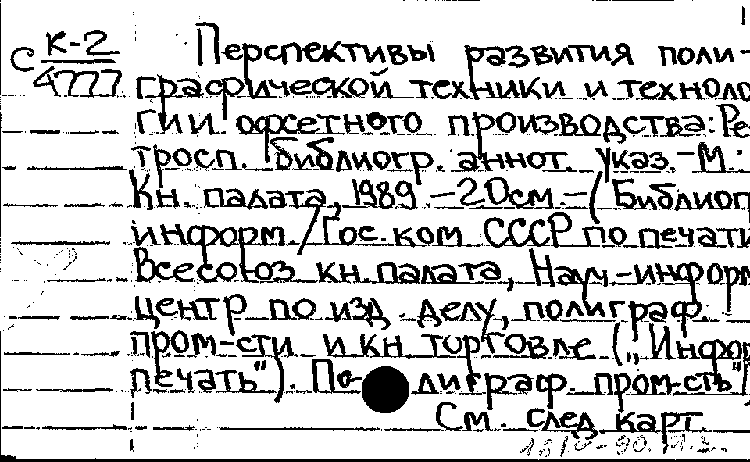 С К-2/4777
Перспективы развития поли-
графической техники и техноло
гии офсетного производства: Ре
тросп. библиогр. аннот. указ. - М.:
Кн. палата, 1989. - 20см. - (Библиог
информ. / Гос. ком СССР по печати
Всесоюз кн. палата, Науч.-информ
центр по изд. делу, полиграф.
пром-сти и кн торговле („Инфор
печать"). По- лиграф. пром-сть")
См. след. карт.